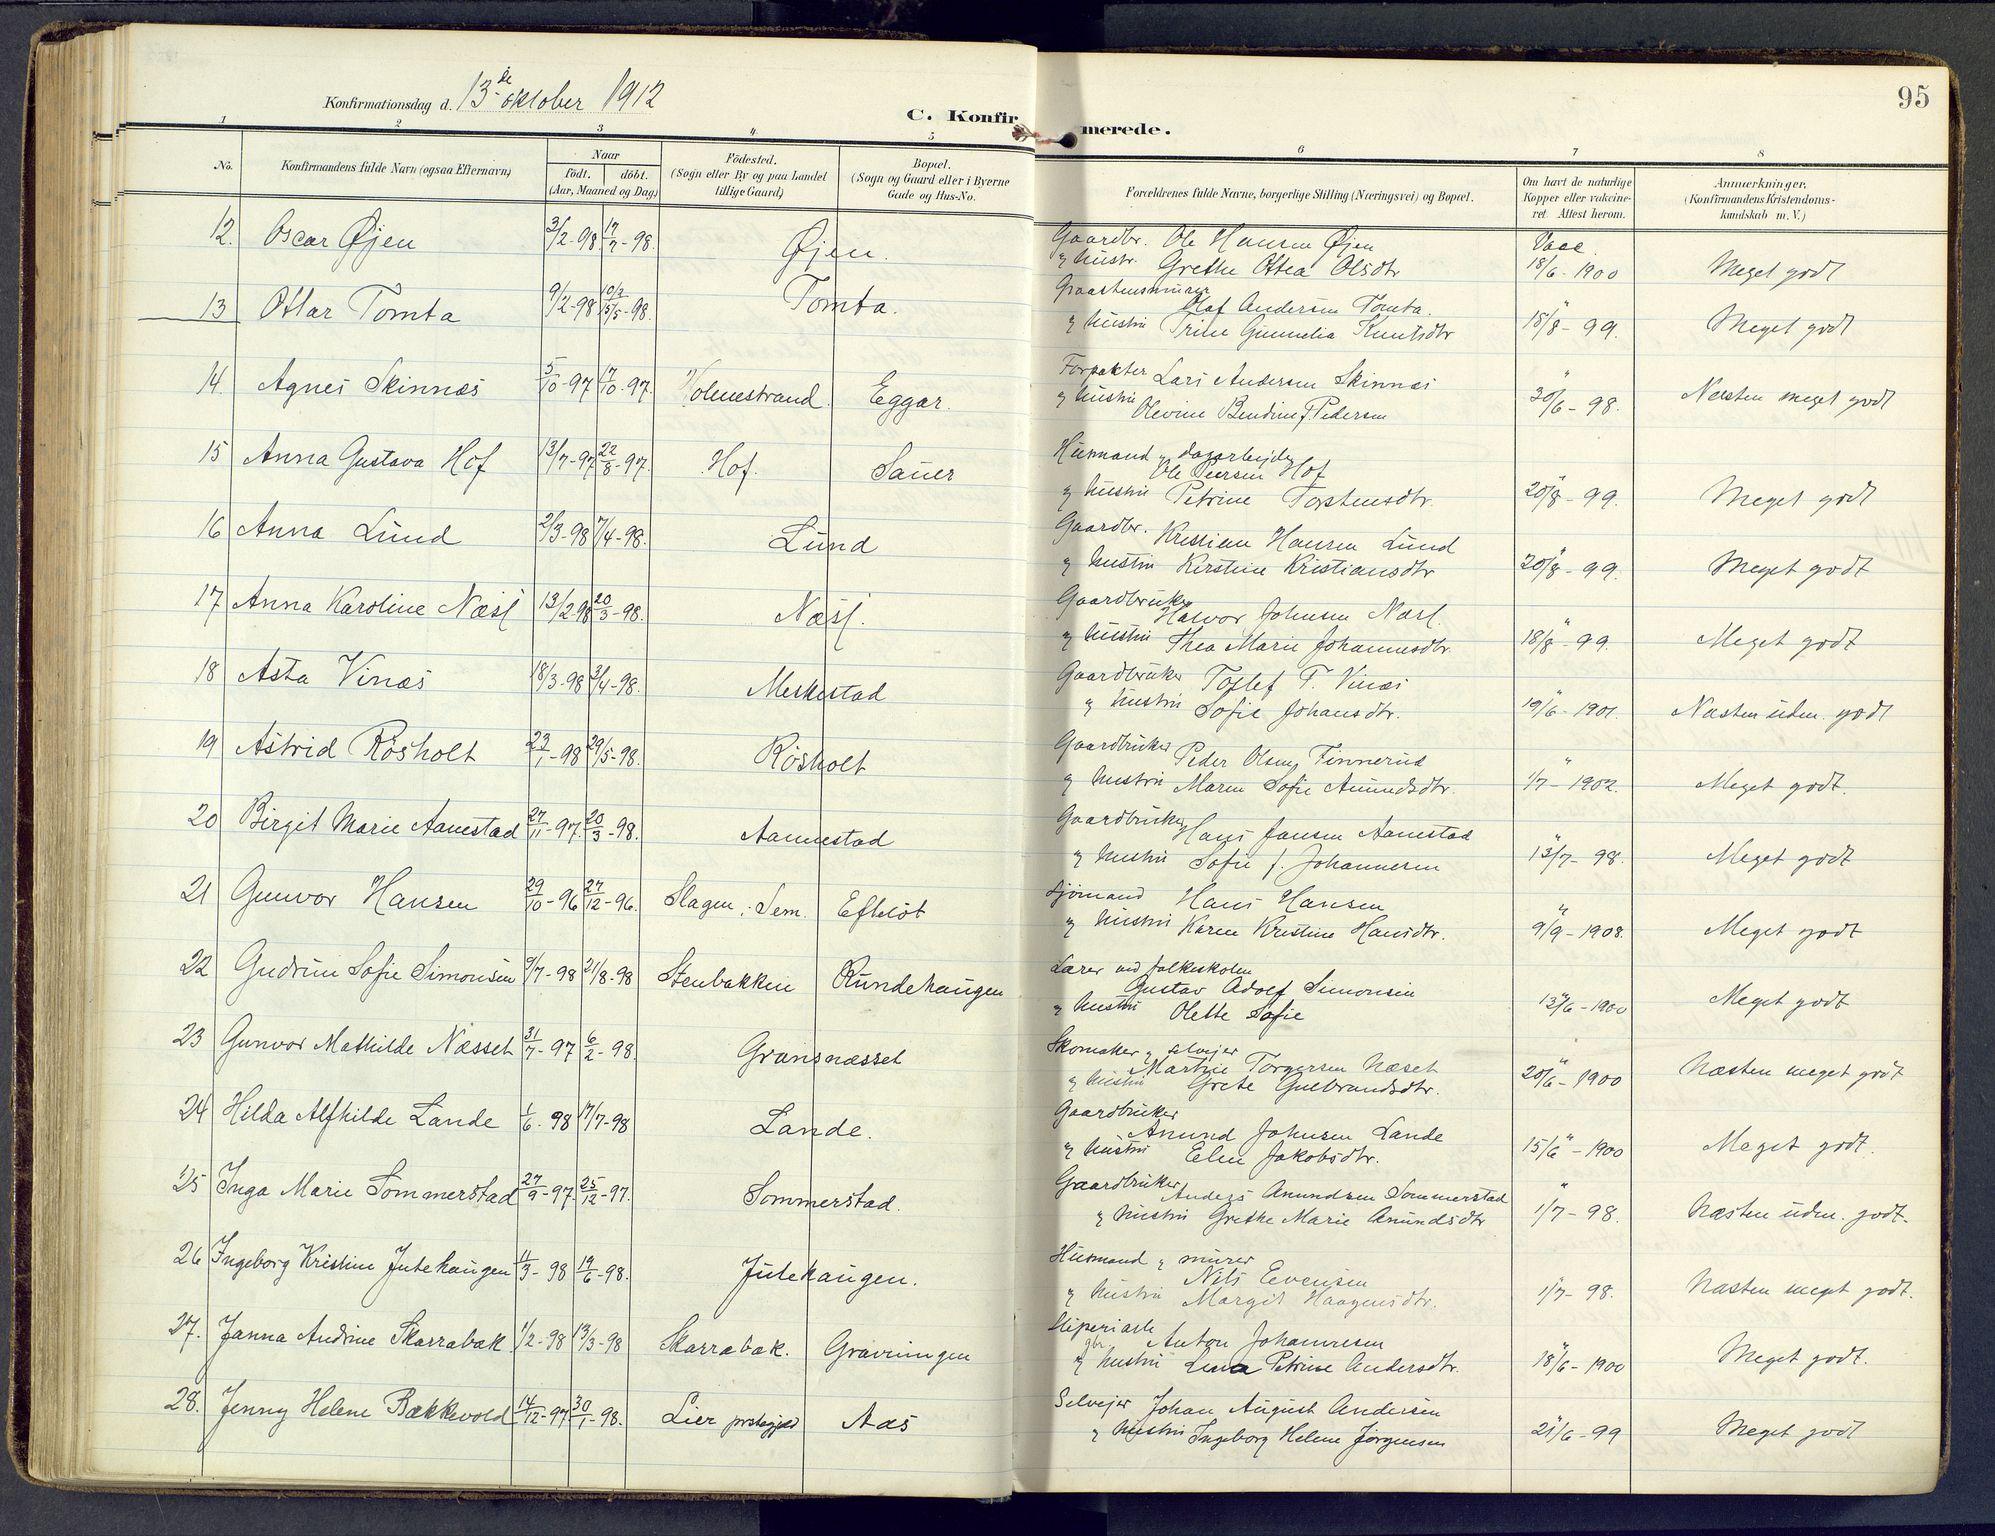 95
Konfirmationsdag d. 13de oktober 1912
C. Konfirmerede.
1 2 3 4 5 6 7 8
No. Konfirmandens fulde Navn (ogsaa Efternavn) Naar født. døbt. (Aar, Maaned og Dag) Fødested. (Sogn eller By og paa Landet tillige Gaard) Bopæl. (Sogn og Gaard eller i Byerne Gade og Hus-No. Forældrenes fulde Navne, borgerlige Stilling (Næringsvei) og Bopæl. Om havt de naturlige Kopper eller vakcineret. Attest herom. Anmærkninger. (Konfirmandens Kristendomskundskab m. V.)
12. Oscar Øjen 3/2-98 17/7-98. Øjen. Gaardbr. Ole Hansen Øjen Vacc.
og hustr. Grethe Ottea Olsdtr 18/6-1900 Meget godt
13 Ottar Tomta 9/2-98 15/5-98. Tomta. Graastensmurer
Olaf Andersen Tomta.
og hustru Trine Gunnelia Knutsdtr 18/8-99. Meget godt
14. Agnes Skinnæs 5/10-97 17/10-97. Holmestrand Eggar. Forpakter Lars Andersen Skinnæs
og hustru Olevine Bendine f. Pedersen 30/6-98. Næsten meget godt
15 Anna Gustava Hof 13/7-97 22/8-97. Hof. Sauer Husmand og dagarbejder
Ole Peersen Hof
og hustru Petrine Torstensdtr. 20/8-99. Meget godt
16 Anna Lund 2/3-98 7/4-98. Lund Gaardbr. Kristian Hansen Lund
og hustru Kirstine Kristiansdtr 20/8-99. Meget godt
17 Anna Karoline Næsl 13/2-98 20/3-98. Næsl. Gaardbruker
Halvor Johnsen Næsl.
og hustru Thea Marie Johannesdtr. 18/8-99. Meget godt
18 Asta Vinæs 18/3-98 3/4-98. Merkestad Gaardbruker Tollef T. Vinæs
og hustru Sofie Johansdtr. 19/6-1901. Næsten udm. godt
19 Astrid Røsholt 23/1-98 29/5-98. Røsholt Gaardbruker Peder Olsen Finnerud
og hustru Maren Sofie Amundsdtr. 1/7-1902. Meget godt.
20 Birgit Marie Aanestad 27/11-97. 20/3-98. Aannestad Gaardbruker Hans Jansen Aanestad
og hustru Sofie f. Johannesen 13/7-98. Meget godt
21 Gunvor Hansen 29/10-96 27/12-96. Slagen, Sem. Efteløt Sjømand Hans Hansen
og hustru Karen Kristine Hansdtr. 9/9-1908. Meget godt
22 Gudrun Sofie Simonsen 9/7-98 21/8-98 Stenbakken Rundehaugen Lærer ved folkeskolen
Gustav Adolf Simonsen
og hustru Olette Sofie 13/6-1900 Meget godt
23 Gunvor Mathilde Næsset 31/7-97 6/2-98. Grønsnæsset Skomaker og selvejer
Martin Torgersen Næset
og hustru Grete Gulbrandsdtr. 20/6-1900 Næsten meget godt
24 Hilda Alfhilde Lande 1/6-98 17/7-98 Lande. Gaardbruker
Amund Johnsen Lande
og hustru Elen Jakobsdtr. 15/6-1900 Meget godt.
25 Inga Marie Sommerstad 27/9-97 25/12-97. Sommerstad. Gaardbruker
Anders Amundsen Sommerstad
og hustru Grethe Marie Amundsdtr 1/7-98. Næsten udm. godt.
26 Ingeborg Kristine Jutehaugen 11/3-98 19/6-98. Jutehaugen. Husmand og murer
Nils Evensen
og hustru Margit Haagensdtr. 1/7-98. Næsten meget godt.
27. Janna Andrine Skarrabak 1/2-98 13/3-98 Skarrabak. Gravningen
gbr. Anton Johannesen
og hustru Lena Petrine Andersdtr. 18/6-1900 Meget godt.
28. Jenny Helene Bækkevold 14/12-97 30/1-98. Lier prstegjeld Aas Selvejer Johan August Andersen
og hustru Ingeborg Helene Jørgensen 21/6-99 Meget godt